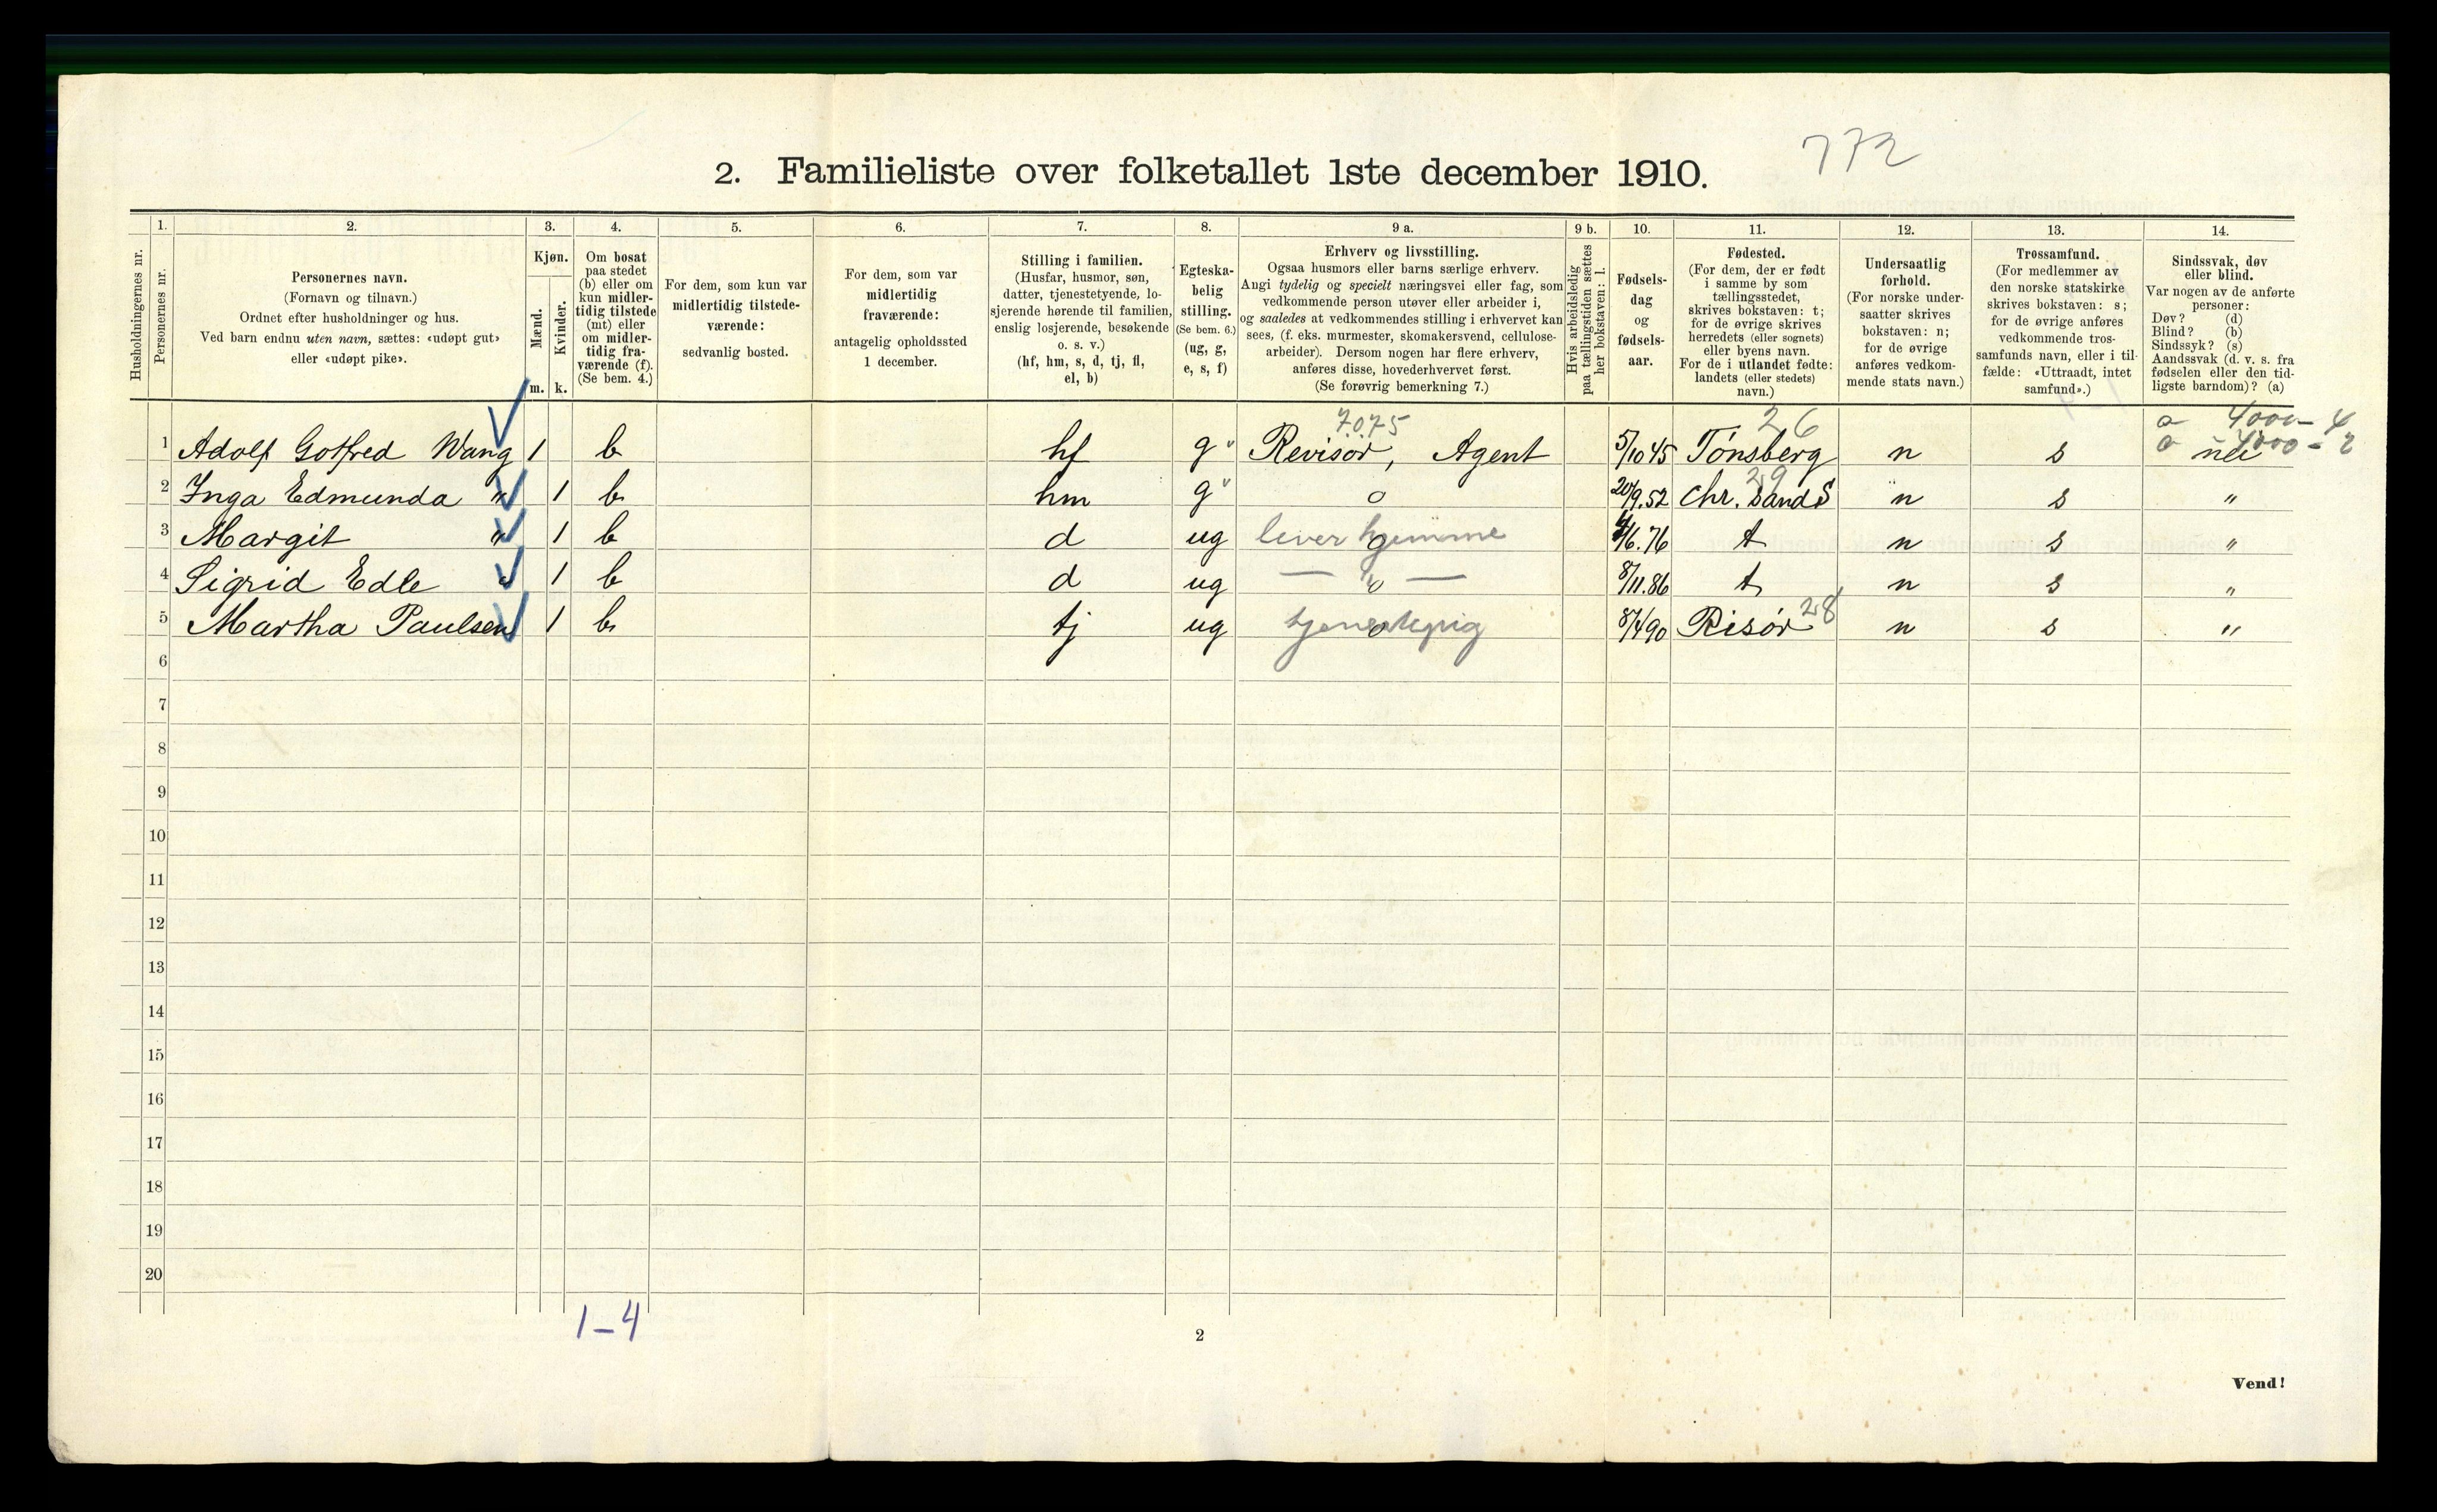 2. Familieliste over folketallet 1ste december 1910.
772
Husholdningernes nr.
1.
Personernes nr.
2.
Personernes navn.
(Fornavn og tilnavn.)
Ordnet efter husholdninger og hus.
Ved barn endnu uten navn, sættes: «udøpt gut»
eller «udøpt pike».
3.
Kjøn.
Mænd.
Kvinder.
m.
k.
4.
Om bosat
paa stedet
(b) eller om
kun midler-
tidig tilstede
(mt) eller
om midler-
tidig fra-
værende (f).
(Se bem. 4.)
5.
For dem, som kun var
midlertidig tilstede-
værende:
sedvanlig bosted.
6.
For dem, som var
midlertidig
fraværende:
antagelig opholdssted
1 december.
7.
Stilling i familien.
(Husfar, husmor, søn,
datter, tjenestetyende, lo-
sjerende hørende til familien,
enslig losjerende, besøkende
o. s. v.)
(hf, hm, s, d, tj, fl,
el, b)
8.
Egteska-
belig
stilling.
(Se bem. 6.)
(ug, g,
e, s, f)
9 a.
Erhverv og livsstilling.
Ogsaa husmors eller barns særlige erhverv.
Angi tydelig og specielt næringsvei eller fag, som
vedkommende person utøver eller arbeider i,
og saaledes at vedkommendes stilling i erhvervet kan
sees, (f. eks. murmester, skomakersvend, cellulose-
arbeider). Dersom nogen har flere erhverv,
anføres disse, hovederhvervet først.
(Se forøvrig bemerkning 7.)
9 b.
Hvis arbeidsledig
paa tællingstiden sættes
her bokstaven: l.
10.
Fødsels-
dag
og
fødsels-
aar.
11.
Fødested.
(For dem, der er født
i samme by som
tællingsstedet,
skrives bokstaven: t;
for de øvrige skrives
herredets (eller sognets)
eller byens navn.
For de i utlandet fødte:
landets (eller stedets)
navn.)
12.
Undersaatlig
forhold.
(For norske under-
saatter skrives
bokstaven: n;
for de øvrige
anføres vedkom-
mende stats navn.)
13.
Trossamfund.
(For medlemmer av
den norske statskirke
skrives bokstaven: s;
for de øvrige anføres
vedkommende tros-
samfunds navn, eller i til-
fælde: «Uttraadt, intet
samfund».)
14.
Sindssvak, døv
eller blind.
Var nogen av de anførte
personer:
Døv? (d)
Blind? (b)
Sindssyk? (s)
Aandssvak (d. v. s. fra
fødselen eller den tid-
ligste barndom)? (a)
7075 26 a 4000 - 4
a 4000 - 2
1 Adolf Gotfred Wang 1 b hf g Revisor, Agent 5/10 45 Tønsberg n s nei
29
2 Inga Edmunda " 1 b hm g o 20/9.52 Chr. Sand S n s "
3 Margit " 1 b d ug lever hjemme o 4/6.76 t n s "
4 Sigrid Edle " 1 b d ug — " — o 8/11.86 t n s "
5 Martha Paulsen 1 b tj ug tjenestepig o 8/4 90 Risør 28 n s "
6
7
8
9
10
11
12
13
14
15
16
17
18
19
20
1-4
2
Vend!